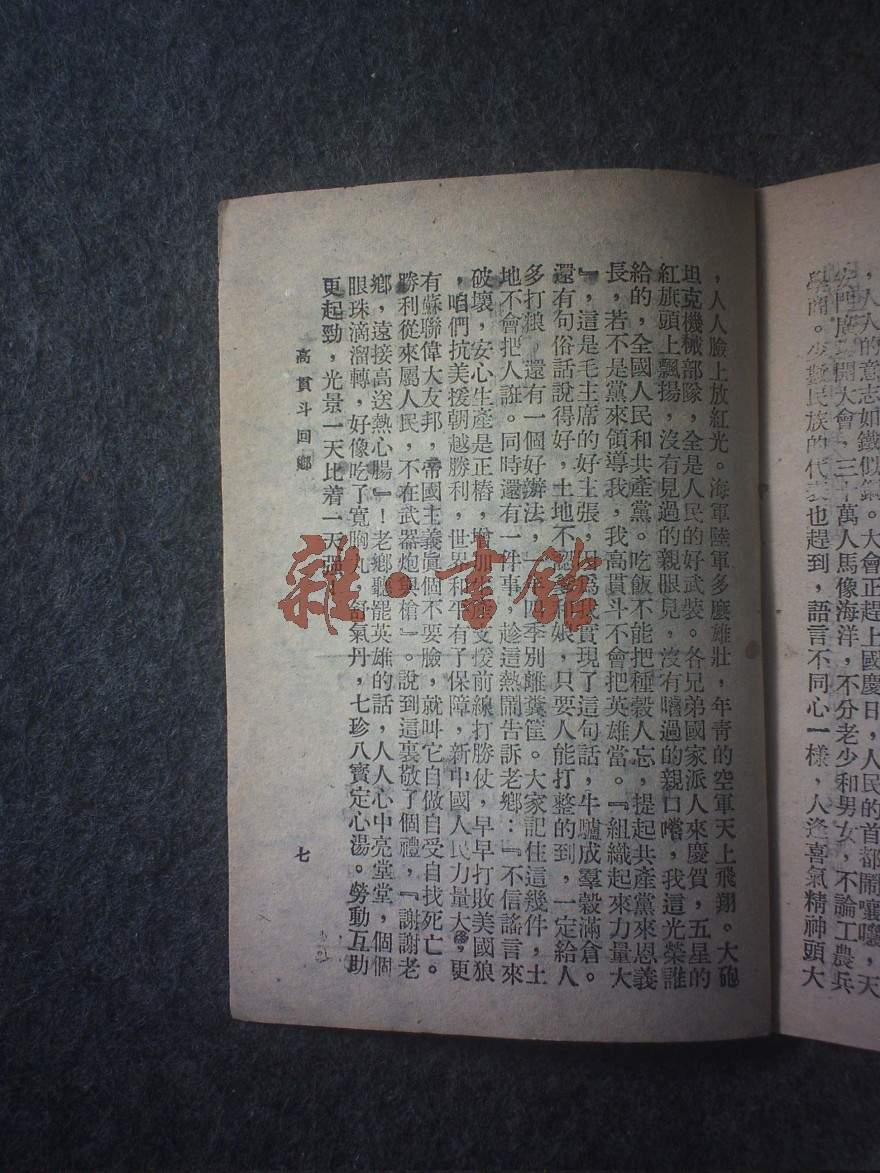 ，人人的意志如鐵似鋼。大會正趕上國慶日，人民的首都鬧嚷嚷，天
安門廣場開大會，三十萬人馬像海洋，不分老少和男女，不論工農兵
學商。少數民族的代表也趕到，語言不同心一樣，人逢喜氣精神頭大
，人人臉上放紅光。海軍陸軍多麼雄壯，年青的空軍天上飛翔。大砲
坦克機械部隊，全是人民的好武裝。各兄弟國家派人來慶賀，五星的
紅旗頭上飄揚，沒有見過的親眼見，沒有嚐過的親口嚐，我這光榮誰
給的，全國人民和共產黨。吃飯不能把種穀人忘，提起共產黨來恩義
長，若不是黨來領導我，我高貫斗不會把英雄當。『組織起來力量大
』，這是毛主席的好主張，因爲咱實現了這句話，牛驢成羣穀滿倉。
還有句俗話說得好，土地不認爹娘，只要人能打整的到，一定給人
多打粮。還有一個好辦法，一年四季別離糞筐。大家記住這幾件，土
地不會把人誑。同時還有一件事，趁這熱鬧告訴老鄉：『不信謠言來
破壞，安心生產是正樁，增加生產支援前線打勝仗，早早打敗美國狼
，咱們抗美援朝越勝利，世界和平有了保障，新中國人民力量大，更
有蘇聯偉大友邦，帝國主義眞個不要臉，就叫它自做自受自找死亡。
勝利從來屬人民，不在武器炮與槍』。說到這裏敬了個禮，『謝謝老
鄉，遠接高送熱心腸』！老鄉聽罷英雄的話，人人心中亮堂堂，個個
眼珠滴溜轉，好像吃了寬胸丸，舒氣丹，七珍八寶定心湯。勞動互助
更起勁，光景一天比着一天強
高貫斗回鄉
七
雜·書館